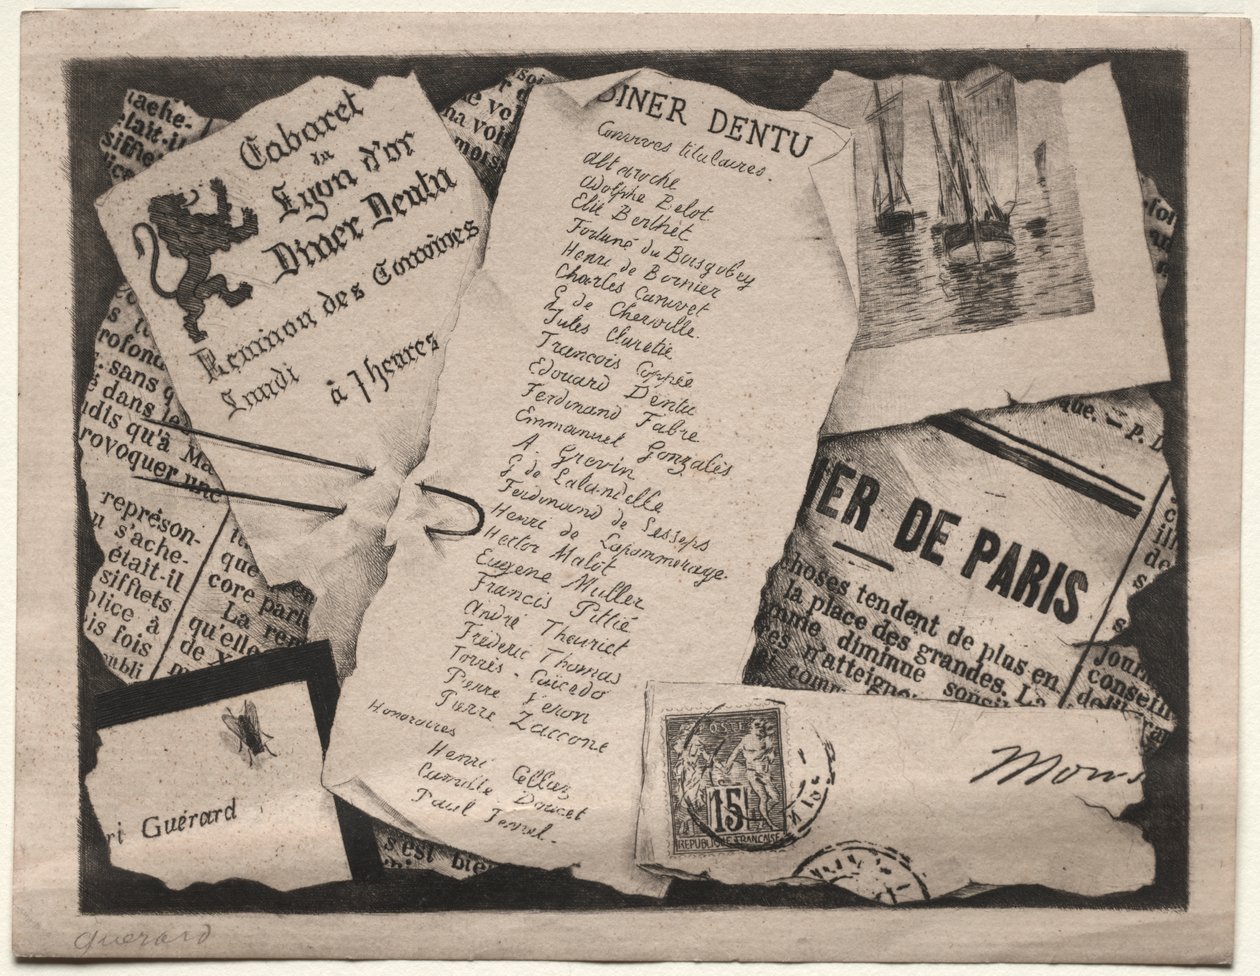 Cabaret
du
Lyon d'or
Diner Dentu
Reunion des Convives
Lundi à 7 heures
DINER DENTU
Convives titulaires.
Altaroche
Adolphe Belot
Elie Berthet
Fortuné du Boisgobey
Henri de Bornier
Charles Canivet
G de Cherville.
Jules Claretie
Francois Coppée
Edouard Dentu
Ferdinand Fabre
Emmanuel Gonzalès
A. Grevin
G de Lalandelle
Ferdinand de Lesseps
Henri de Lapommeraye.
Hector Malot
Eugene Muller
Francis Pittié
André Theuriet
Fréderic Thomas
Torrès-Caicedo
Pierre Véron
Pierre Zaccone
Honoraires
Henri Celliez
Camille Doucet
Paul Ferrel.
tache-
était-il
siffle
lice
soi
e vo
na voi
mois
rofond
sans q
é dans le
dis qu'à Ma
rovoquer une
représon-
u s'ache-
était-il
sifflets
olice à
is fois
ubli
que
core parle
La ren
qu'elle
de
que. — P. D
IER DE PARIS
choses tendent de plus en
la place des grandes. La
omme diminue sonsi
es n'atteigne
comm
journ
conseil
de
s'est bien
ri Guérard
POSTES
15
REPUBLIQUE FRANCAISE
Mons
Guerard